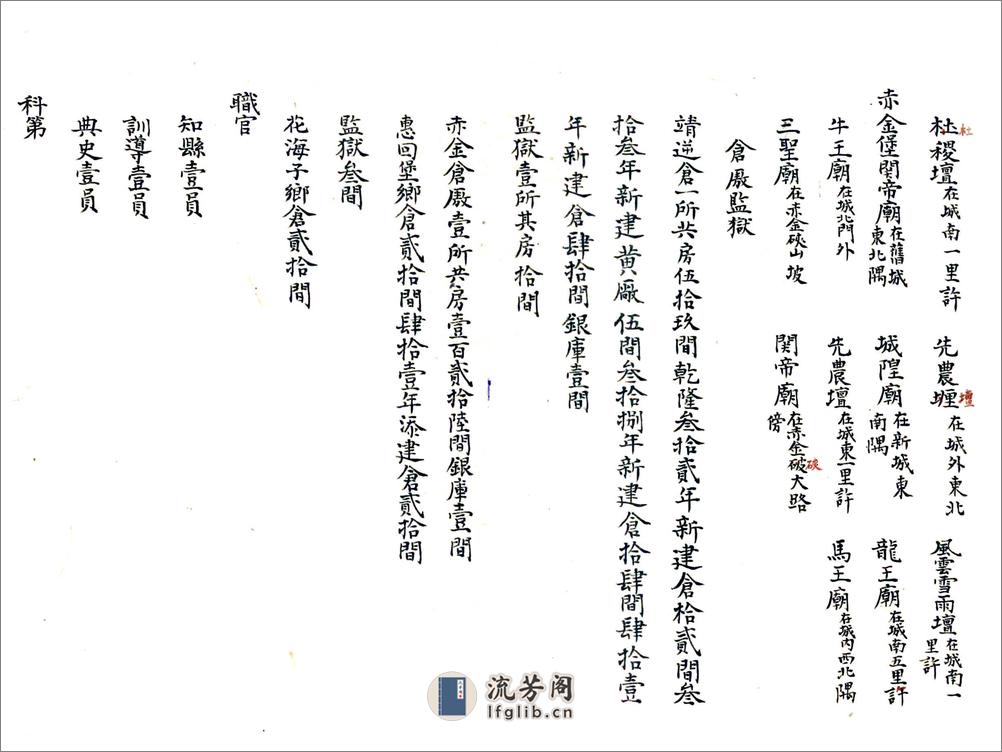 杜稷壇在城南一里許 先農堙在城外東北 風雲雪雨壇在城南一里許
社
壇
赤金堡関帝廟在舊城東北隅 城隍廟在新城東南隅 龍王廟在城南五里許
牛王廟在城北門外 先農壇在城東一里許 馬王廟在城內西北隅
三聖廟在赤金硤山坡 関帝廟在赤金破大路傍
硤
倉厫監獄
靖逆倉一所共房伍拾玖間乾隆叁拾貳年新建倉拾貳間叁
拾叁年新建黄廠伍間叁拾捌年新建倉拾肆間肆拾壹
年新建倉肆拾間銀庫壹間
監獄壹所其房拾間
赤金倉厫壹所共房壹百貳拾陸間銀庫壹間
惠回堡鄉倉貳拾間肆拾壹年添建倉貳拾間
監獄叁間
花海子鄉倉貳拾間
職官
知縣壹員
訓導壹員
典史壹員
科第
流芳阁
lfglib.cn